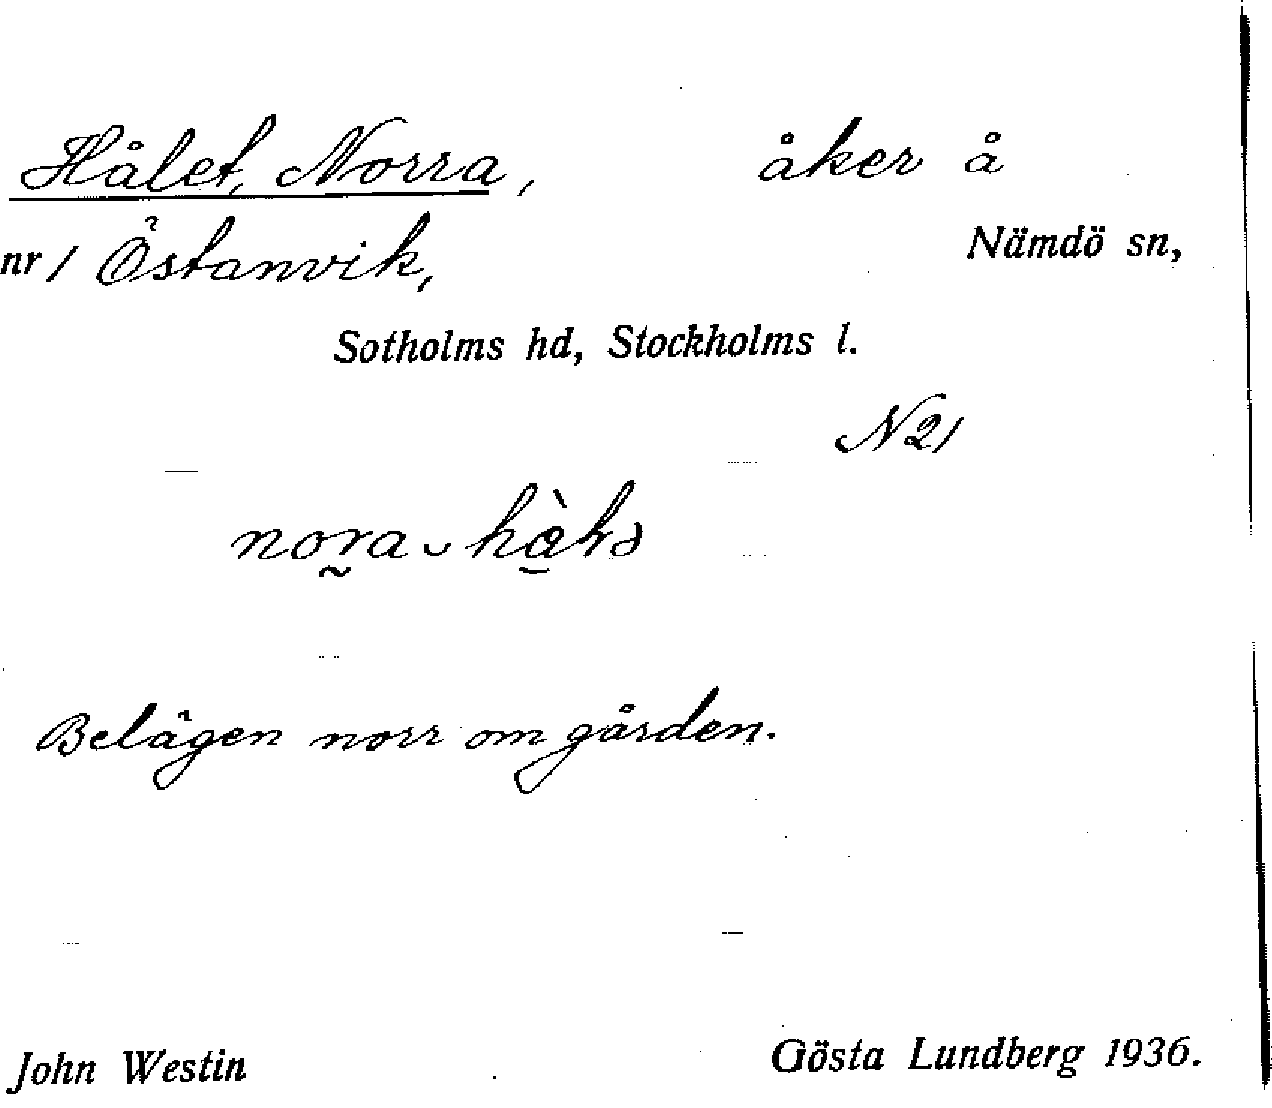 Hålet, Norra, åker å
nr 1 Östanvik, Nämdö sn,
Sotholms hd, Stockholms l.
N 21
Belägen norr om gården.
John Westin Gösta Lundberg 1936.